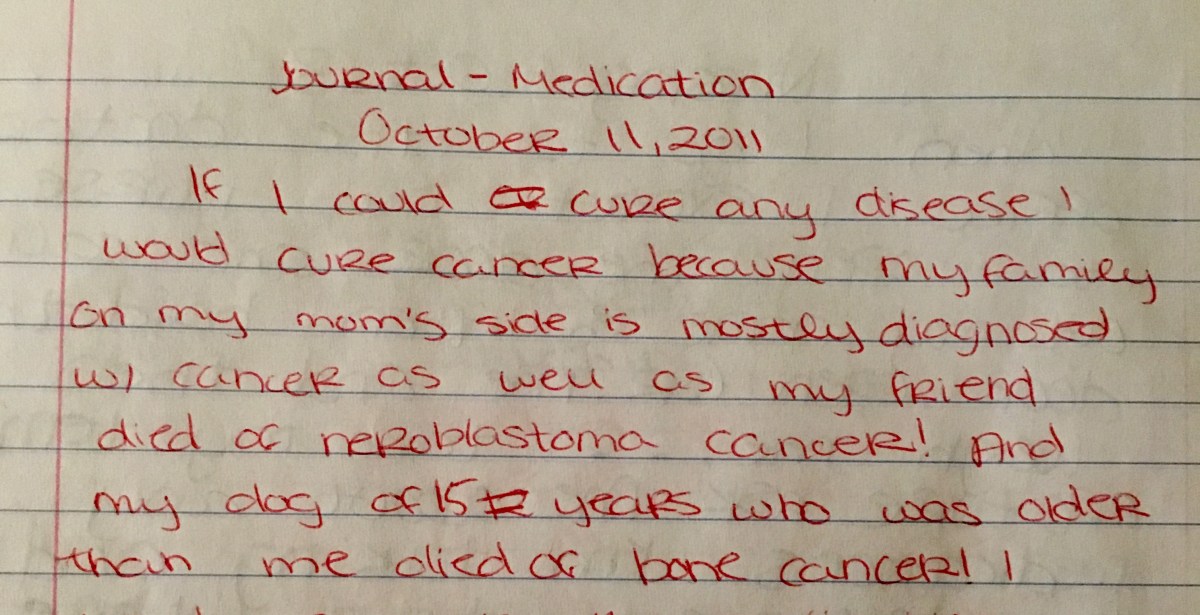 Journal - Medication
October 11, 2011
If I could cure any disease I
would cure cancer because my family
on my mom's side is mostly diagnosed
w/ cancer as well as my friend
died of neroblastoma cancer! And
my dog of 15 years who was older
than me died of bone cancer! I